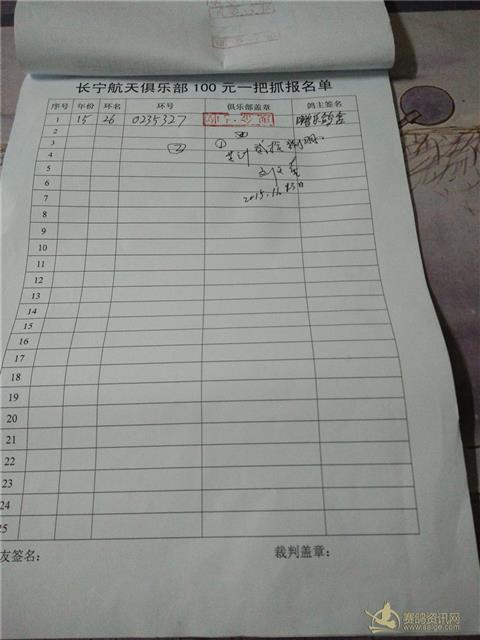 长宁航天俱乐部100元一把抓报名单
序号 年份 环名 环号 俱乐部盖章 鸽主签名
1 15 26 0235327
2
3
4
5
6
7
8
9
10
11
12
13
14
15
16
17
18
19
20
21
22
23
24
25
友签名： 裁判盖章：
赛鸽资讯网
www.saige.com